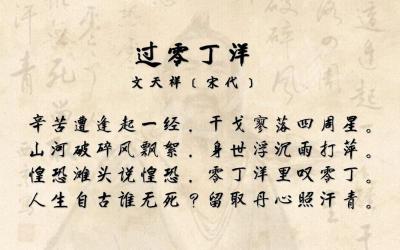 过零丁洋
文天祥〔宋代〕
辛苦遭逢起一经，干戈寥落四周星。
山河破碎风飘絮，身世浮沉雨打萍。
惶恐滩头说惶恐，零丁洋里叹零丁。
人生自古谁无死？留取丹心照汗青。